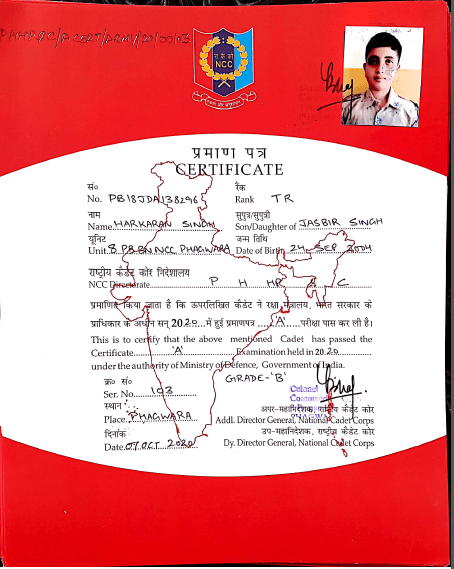 रा.कै.को
NCC
एकता और अनुशासन
प्रमाण पत्र
CERTIFICATE
सं०
No. PB18JDA138296
रैंक
Rank TR
नाम
Name HARKARAN SINGH
सुपुत्र/सुपुत्री
Son/Daughter of JASBIR SINGH
यूनिट
Unit 8 PB BN NCC PHAGWARA
जन्म तिथि
Date of Birth 24 SEP
राष्ट्रीय कैडेट कोर निदेशालय
NCC Directorate P H HP & C
प्रमाणित किया जाता है कि ऊपरलिखित कैडेट ने रक्षा मंत्रालय, भारत सरकार के
प्राधिकार के अधीन सन् 2020 में हुई प्रमाणपत्र 'A' परीक्षा पास कर ली है।
This is to certify that the above mentioned Cadet has passed the
Certificate 'A' Examination held in 2020
under the authority of Ministry of Defence, Government of India.
GRADE-'B'
क्र० सं०
Ser. No. 103
स्थान
Place PHAGWARA
दिनांक
Date 07 OCT 2020
Colonel
अपर-महानिदेशक, राष्ट्रीय कैडेट कोर
Addl. Director General, National Cadet Corps
उप-महानिदेशक, राष्ट्रीय कैडेट कोर
Dy. Director General, National Cadet Corps